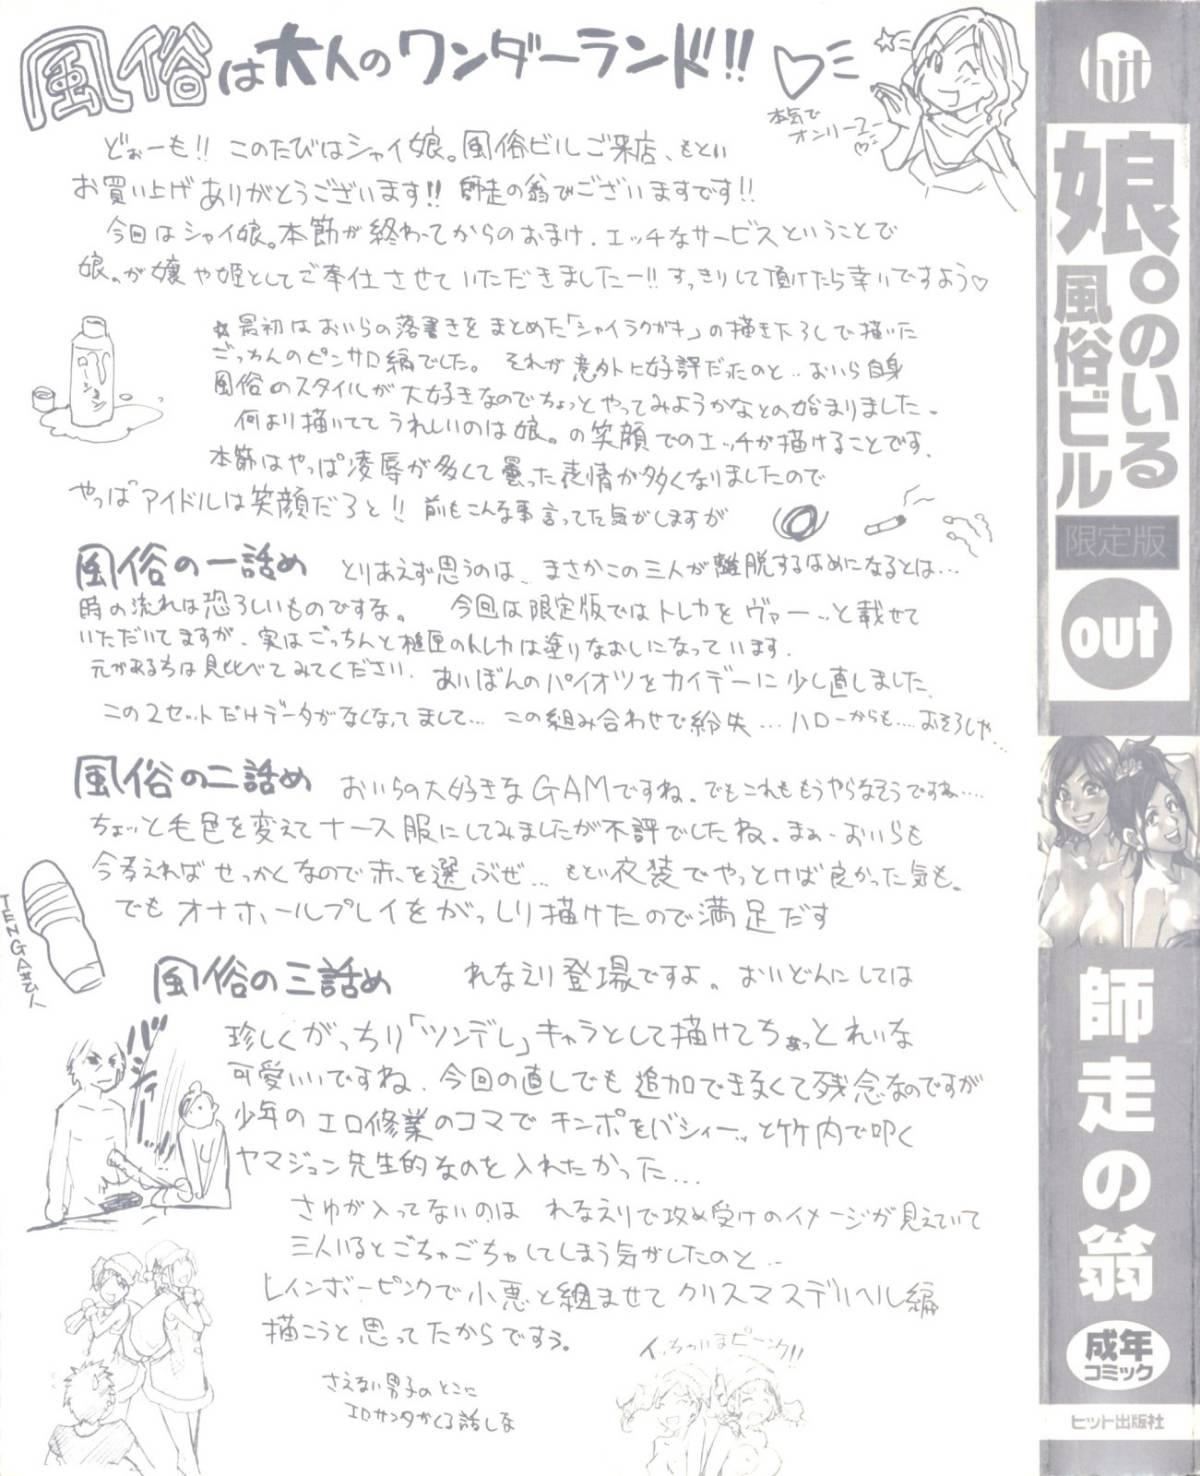 風俗は大人のワンダーランド!!
本気で
オンリーユー
どぉーも!! このたびはシャイ娘。風俗ビルご来店、もとい
お買い上げありがとうございます!! 師走の翁でございますです!!
今回はシャイ娘。本節が終わってからのおまけ、エッチなサービスということで
娘。が嬢や姫としてご奉仕させていただきましたー!! すっきりして頂けたら幸いですよう♡
ローション
★最初はおいらの落書きをまとめた「シャイラクガキ」の描き下ろしで描いた
ごっつぁんのピンサロ編でした。それが意外に好評だったのと..おいら自身
風俗のスタイルが大好きなのでちょっとやってみようかなとの始まりました。
何より描いててうれしいのは娘。の笑顔でのエッチが描けることです。
本節はやっぱ凌辱が多くて曇った表情が多くなりましたので
やっぱアイドルは笑顔だろと!! 前もこんな事言ってた気がしますが
風俗の一話め とりあえず思うのは、まさかこの三人が離脱するはめになるとは…
時の流れは恐ろしいものですな。 今回は限定版ではトレカをヴァーッと載せて
いただいてますが、実はごっちんと のトレカは塗りなおしになっています。
元がある方は見比べてみてください。あいぼんのパイオツをカイデーに少し直しました。
この2セットだけデータがなくなってまして… この組み合わせで紛失…ハローからも…おそろしや…
風俗の二話め おいらの大好きなGAMですね。でもこれももうやらなそうですね…
ちょっと毛色を変えてナース服にしてみましたが不評でしたね。まぁ、おいらも
今考えればせっかくなので赤を選ぶぜ… もとい衣装でやっとけば良かった気も。
でもオナホールプレイをがっしり描けたので満足だす
TENGA芸人
風俗の三話め れなえり登場ですよ。おいどんにしては
珍しくがっちり「ツンデレ」キャラとして描けてちょっとれいな
可愛いいですね。今回の直しでも追加できなくて残念なのですが
少年のエロ修業のコマでチンポをバシィーッと竹内で叩く
ヤマジュン先生的なのを入れたかった…
バシィーッ
さゆが入ってないのは れなえりで攻め受けのイメージが見えていて
三人いるとごちゃごちゃしてしまう気がしたのと..
レインボーピンクで小悪と組ませてクリスマスデリヘル編
描こうと思ってたからですぅ。
さえない男子のとこに
エロサンタがくる話しな
イッちゃいまピーンク!!
hit
娘。のいる
風俗ビル
限定版
out
師走の翁
成年
コミック
ヒット出版社